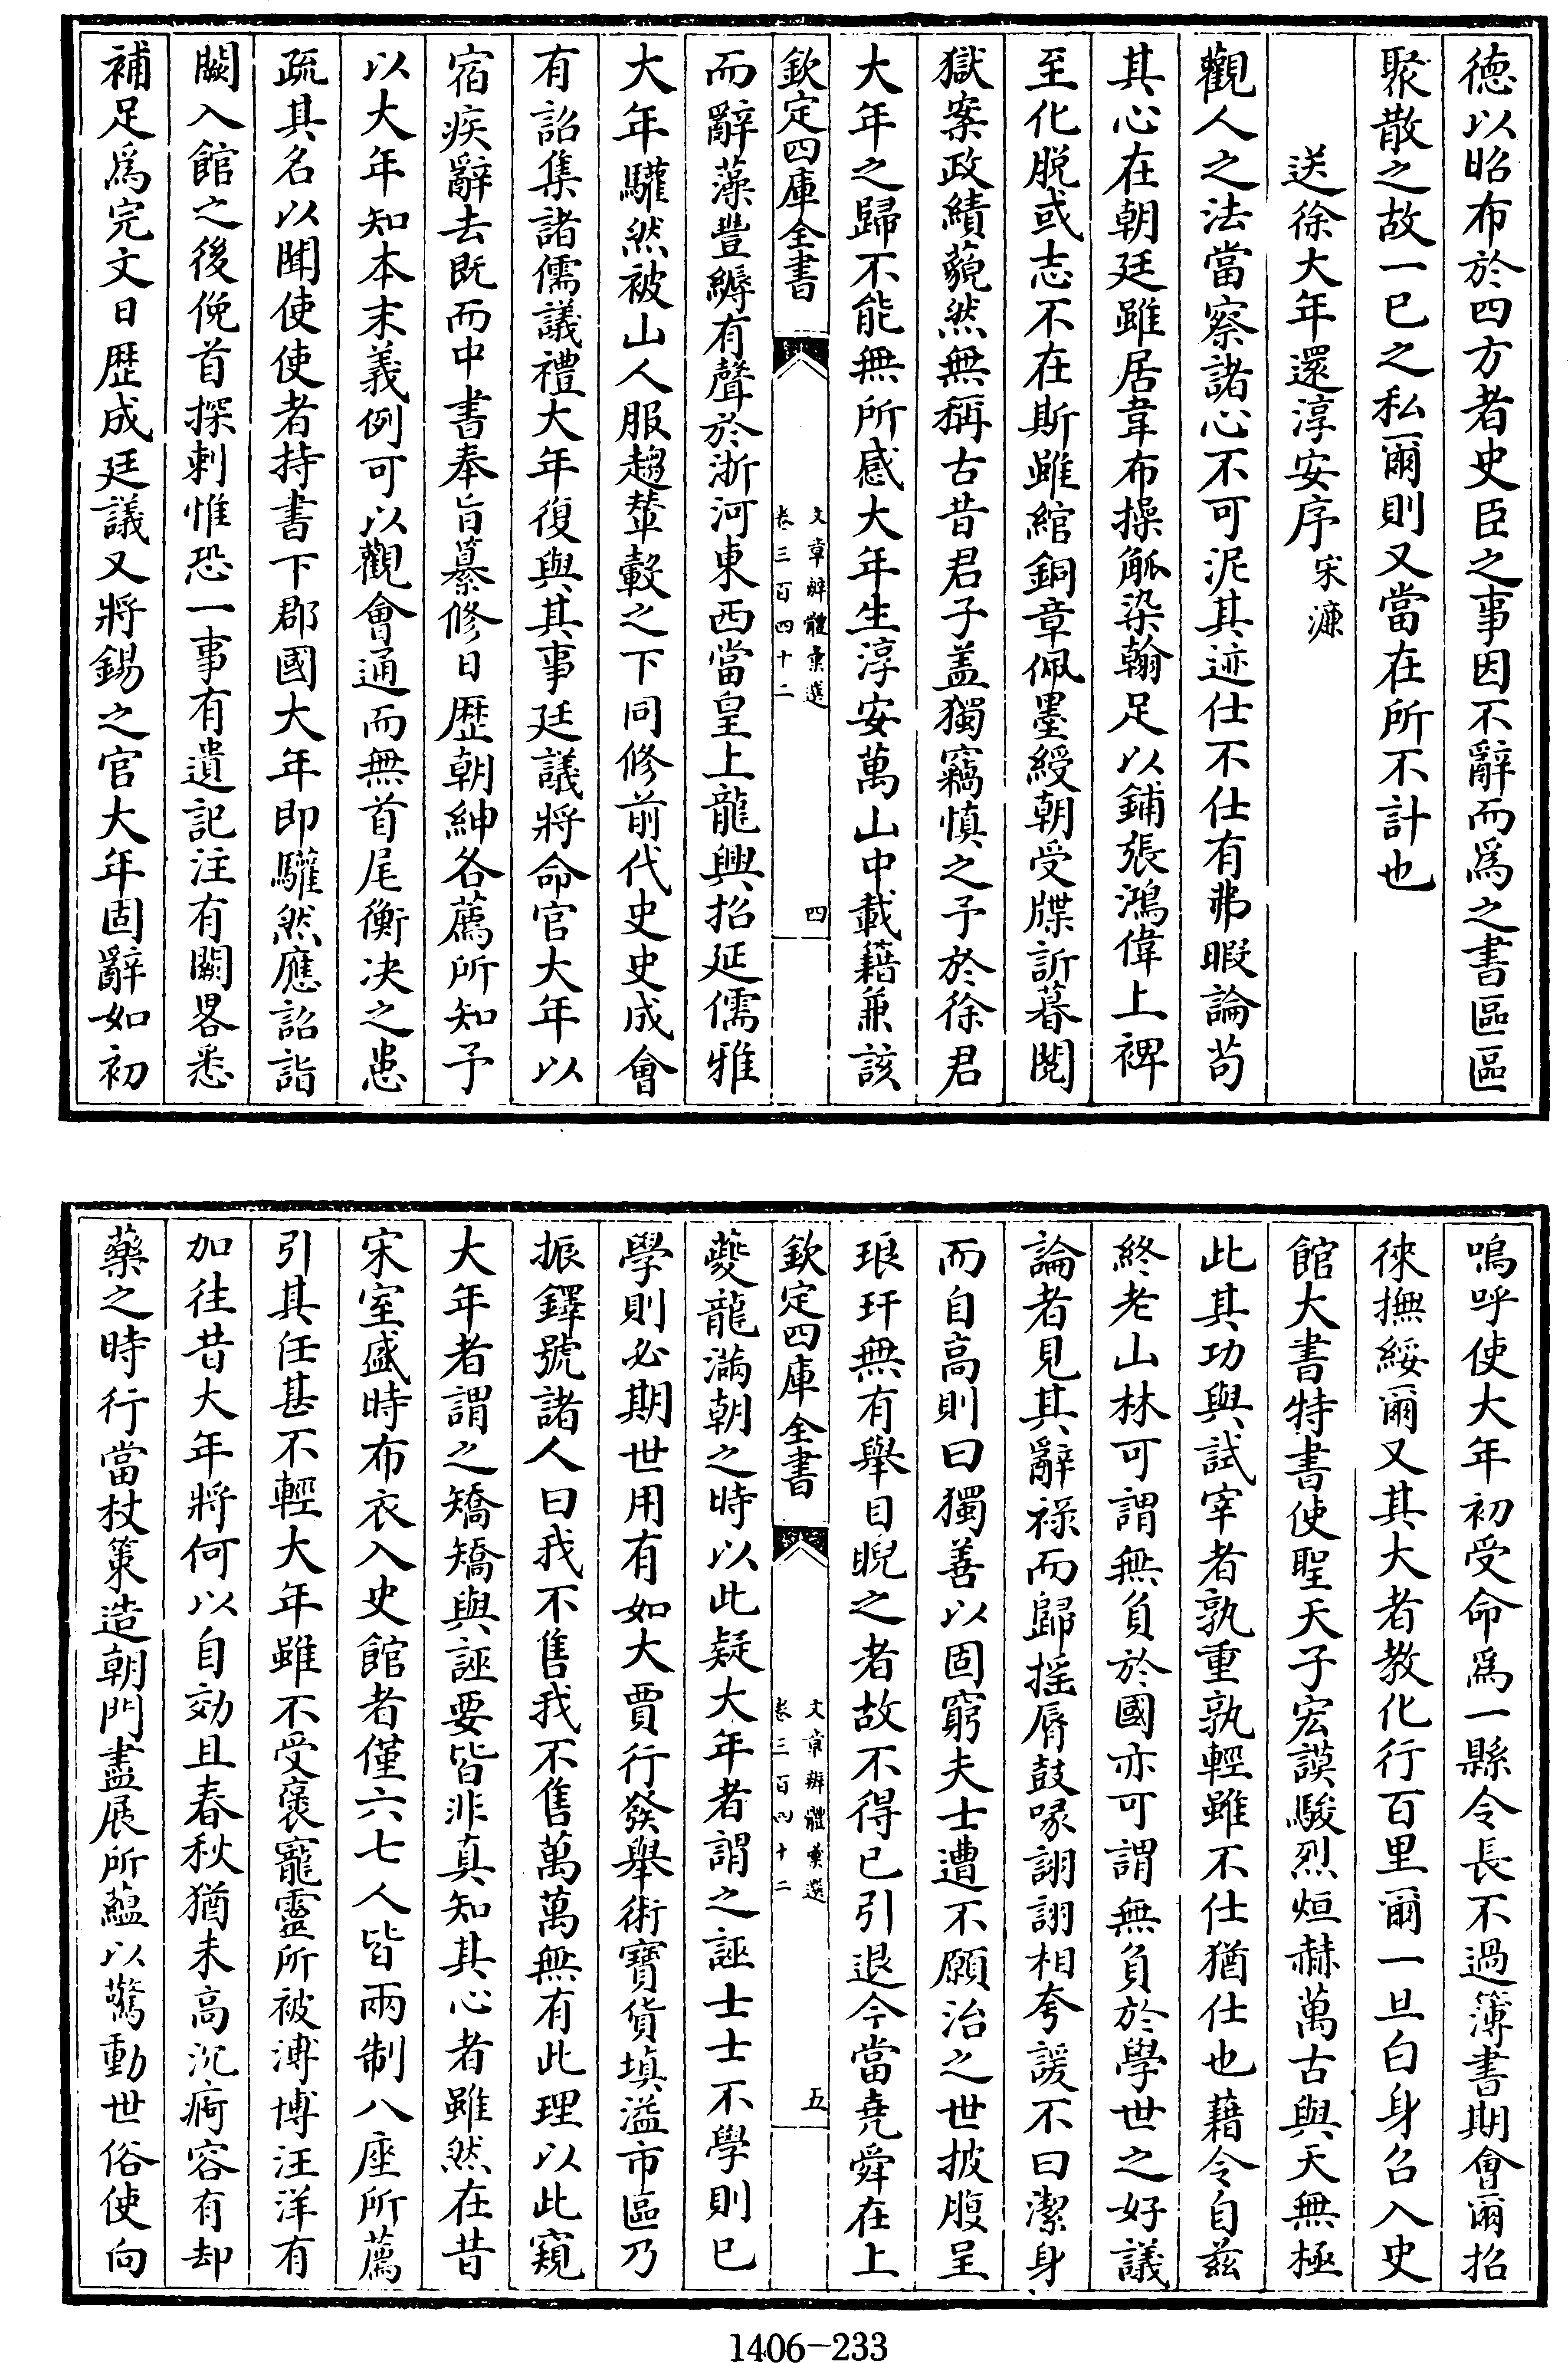 德以昭布於四方者史臣之事因不辭而爲之書區區
聚散之故一已之私爾則又當在所不計也
送徐大年還淳安序宋濂
觀人之法當察諸心不可泥其迹仕不仕有弗暇論茍
其心在朝廷雖居韋布操觚染翰足以鋪張鴻偉上裨
至化脱或志不在斯雖綰銅章佩墨綬朝受牒訴暮閲
獄案政績藐然無稱古昔君子盖獨竊慎之予於徐君
大年之歸不能無所感大年生淳安萬山中載籍兼該
欽定四庫全書
文章辨體彙選
卷三百四十二
四
而辭藻豐縟有聲於浙河東西當皇上龍興招延儒雅
大年驩然被山人服趨輦轂之下同修前代史史成會
有詔集諸儒議禮大年復與其事廷議將命官大年以
宿疾辭去既而中書奉旨纂修日歴朝紳各薦所知予
以大年知本末義例可以觀會通而無首尾衡决之患
疏其名以聞使使者持書下郡國大年即驩然應詔詣
闕入館之後俛首探刺惟恐一事有遺記注有闕畧悉
補足爲完文日歴成廷議又將錫之官大年固辭如初
嗚呼使大年初受命爲一縣令長不過簿書期會爾招
徠撫綏爾又其大者教化行百里爾一旦白身召入史
館大書特書使聖天子宏謨駿烈烜赫萬古與天無極
此其功與試宰者孰重孰輕雖不仕猶仕也藉令自兹
終老山林可謂無負於國亦可謂無負於學世之好議
論者見其辭禄而歸摇唇鼓喙詡詡相夸諼不曰潔身
而自高則曰獨善以固窮夫士遭不願治之世披腹呈
琅玕無有舉目睨之者故不得已引退今當堯舜在上
欽定四庫全書
文章辨體彙選
卷三百四十二
五
夔龍滿朝之時以此疑大年者謂之誣士士不學則已
學則必期世用有如大賈行發舉術寶貨填溢市區乃
振鐸號諸人曰我不售我不售萬萬無有此理以此窺
大年者謂之矯矯與誣要皆非真知其心者雖然在昔
宋室盛時布衣入史館者僅六七人皆兩制八座所薦
引其任甚不輕大年雖不受褒寵靈所被溥博汪洋有
加往昔大年將何以自効且春秋猶未高沉痾容有却
藥之時行當杖策造朝門盡展所藴以驚動世俗使向
1406-233